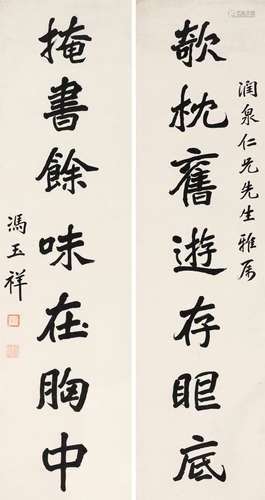 潤泉仁兄先生雅屬
欹枕舊遊存眼底
掩書餘味在胸中
馮玉祥